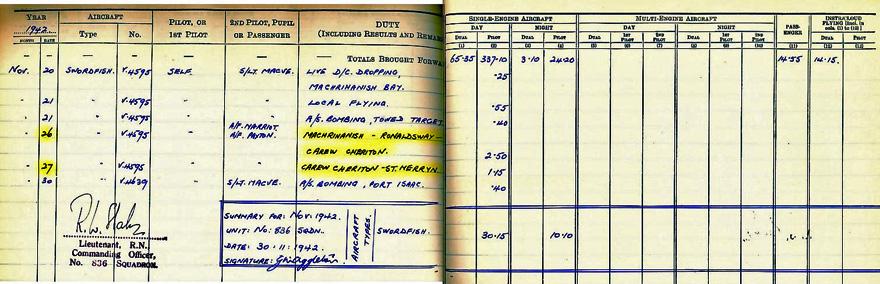 YEAR AIRCRAFT PILOT, OR 2ND PILOT, PUPIL DUTY SINGLE-ENGINE AIRCRAFT MULTI-ENGINE AIRCRAFT PASS- INSTR/CLOUD
1942. 1ST PILOT OR PASSENGER (INCLUDING RESULTS AND REMAR DAY NIGHT DAY NIGHT ENGER FLYING [Incl. in
MONTH DATE Type No. DUAL PILOT DUAL PILOT DUAL 1ST PILOT 2ND PILOT DUAL 1ST PILOT 2ND PILOT cols. (1) to (10)]
DUAL PILOT
(1) (2) (3) (4) (5) (6) (7) (8) (9) (10) (11) (12) (13)
— — — — — TOTALS BROUGHT FORWA 65·35 337·10 3·10 24·20 14·55 14·15.
NOV. 20 SWORDFISH. V.4595 SELF. S/LT. MACVE. LIVE D/C. DROPPING, ·25
MACHRIHANISH BAY.
" 21 " V.4595 " " LOCAL FLYING. ·55
" 21 " V.4595 " " A/S. BOMBING, TOWED TARGET ·40
" 26 " V.4595 " A/P. MARRIOT. A/P. MACHRIHANISH - RONALDSWAY -
CAREW CHERITON. 2·50
" 27 " V.4595 " " CAREW CHERITON - ST. MERRYN. 1·15
" 30 " V.4639 " S/LT. MACVE. A/S. BOMBING, PORT ISAAC. ·40
R.W.
Lieutenant, R.N.,
Commanding Officer,
No. 836 SQUADRON.
SUMMARY FOR: NOV. 1942.
UNIT: No: 836 SQDN.
DATE: 30·11·1942.
SIGNATURE:
AIRCRAFT TYPES.
SWORDFISH. 30·15 10·10